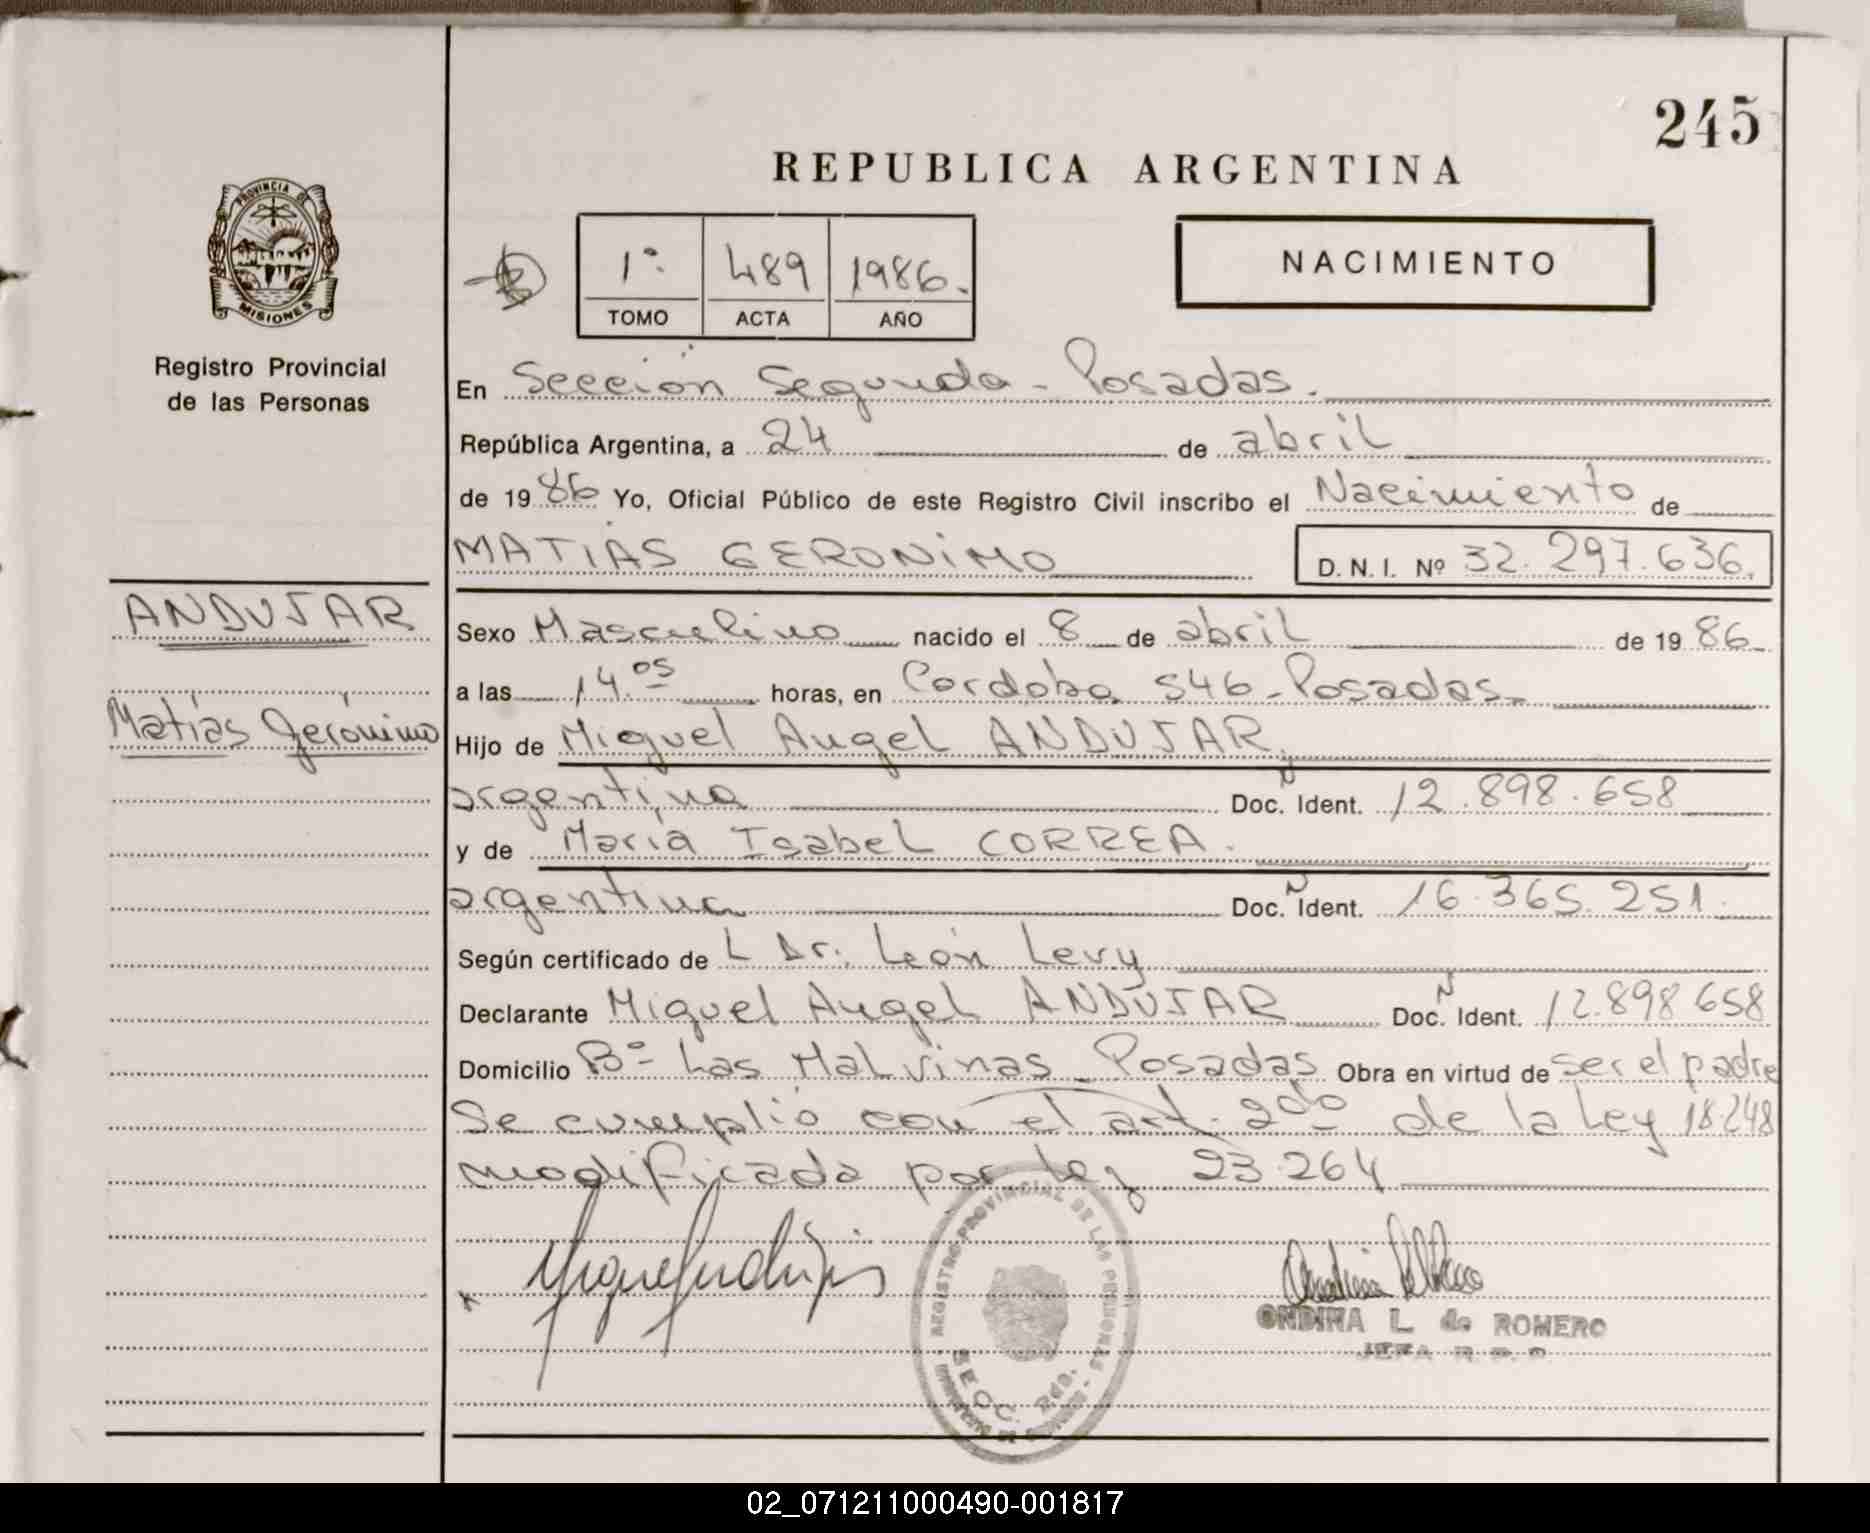 245
REPUBLICA ARGENTINA
PROVINCIA DE
MISIONES
Registro Provincial
de las Personas
1º 489 1986.
TOMO ACTA AÑO
NACIMIENTO
En Sección Segunda - Posadas.
República Argentina, a 24 de abril
de 1986 Yo, Oficial Público de este Registro Civil inscribo el Nacimiento de
MATIAS GERONIMO D.N.I. Nº 32.297.636.
ANDUJAR
Matías Gerónimo
Sexo Masculino nacido el 8 de abril de 1986
a las 14.05 horas, en Cordoba 546 - Posadas -
Hijo de Miguel Angel ANDUJAR,
argentina Doc. Ident. 12.898.658
y de María Isabel CORREA.
argentina Doc. Ident. 16.365.251.
Según certificado de L Dr. León Levy
Declarante Miguel Angel ANDUJAR Doc. Ident. 12.898.658
Domicilio Bº Las Malvinas - Posadas Obra en virtud de ser el padre
Se cumplió con el art. 2do de la Ley 18.248
modificada por Ley 23.264
REGISTRO PROVINCIAL DE LAS PERSONAS
SECC. 2da.
ONDINA L. de ROMERO
JEFA R. P. P.
02_071211000490-001817